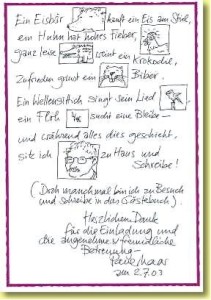 Ein Eisbär kauft ein Eis am Stiel,
ein Huhn hat hohes Fieber,
ganz leise weint ein Krokodil,
zufrieden grinst ein Biber.
Ein Wellensittich singt sein Lied,
ein Floh sucht eine Bleibe –
und während alles dies geschieht,
sitz ich zu Haus und
Schreibe!
(Doch manchmal bin ich zu Besuch
und schreibe in das Gästebuch).
Herzlichen Dank
für die Einladung und
die angenehme & freundliche
Betreuung –
Paul Maar
am 2.7.03